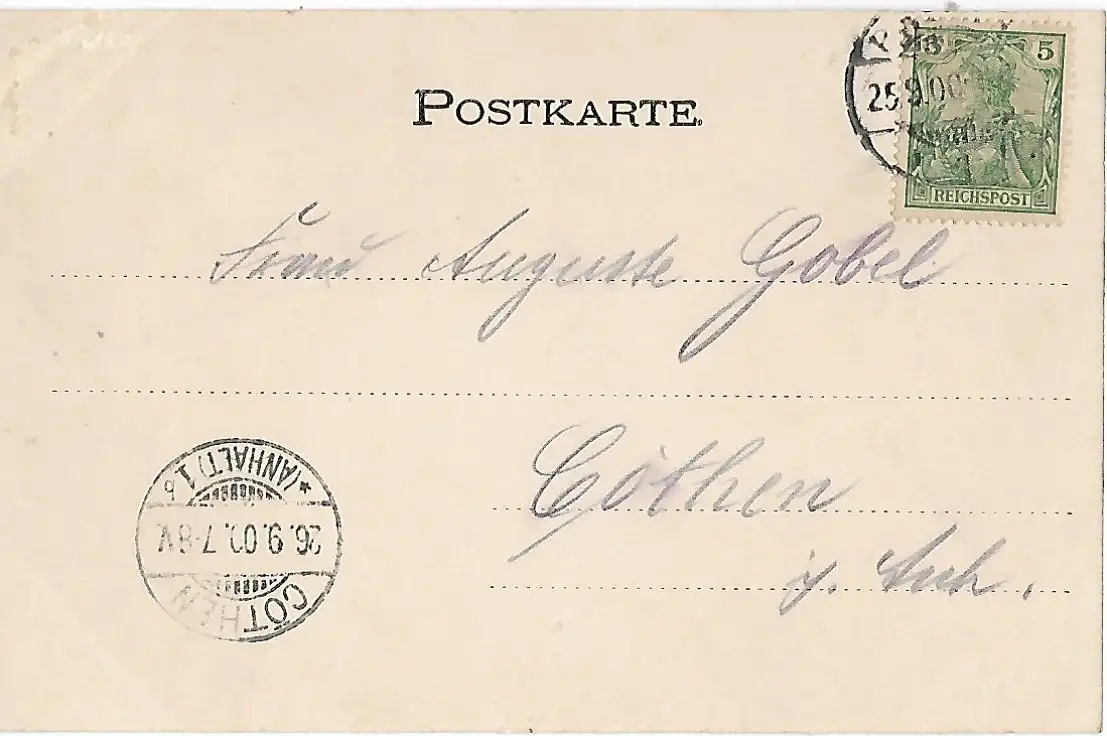 POSTKARTE.
25.9.00
5
REICHSPOST
Frau Auguste Gobel
Cöthen
i. Anh.
CÖTHEN
26.9.00.7-8V.
*(ANHALT)1b